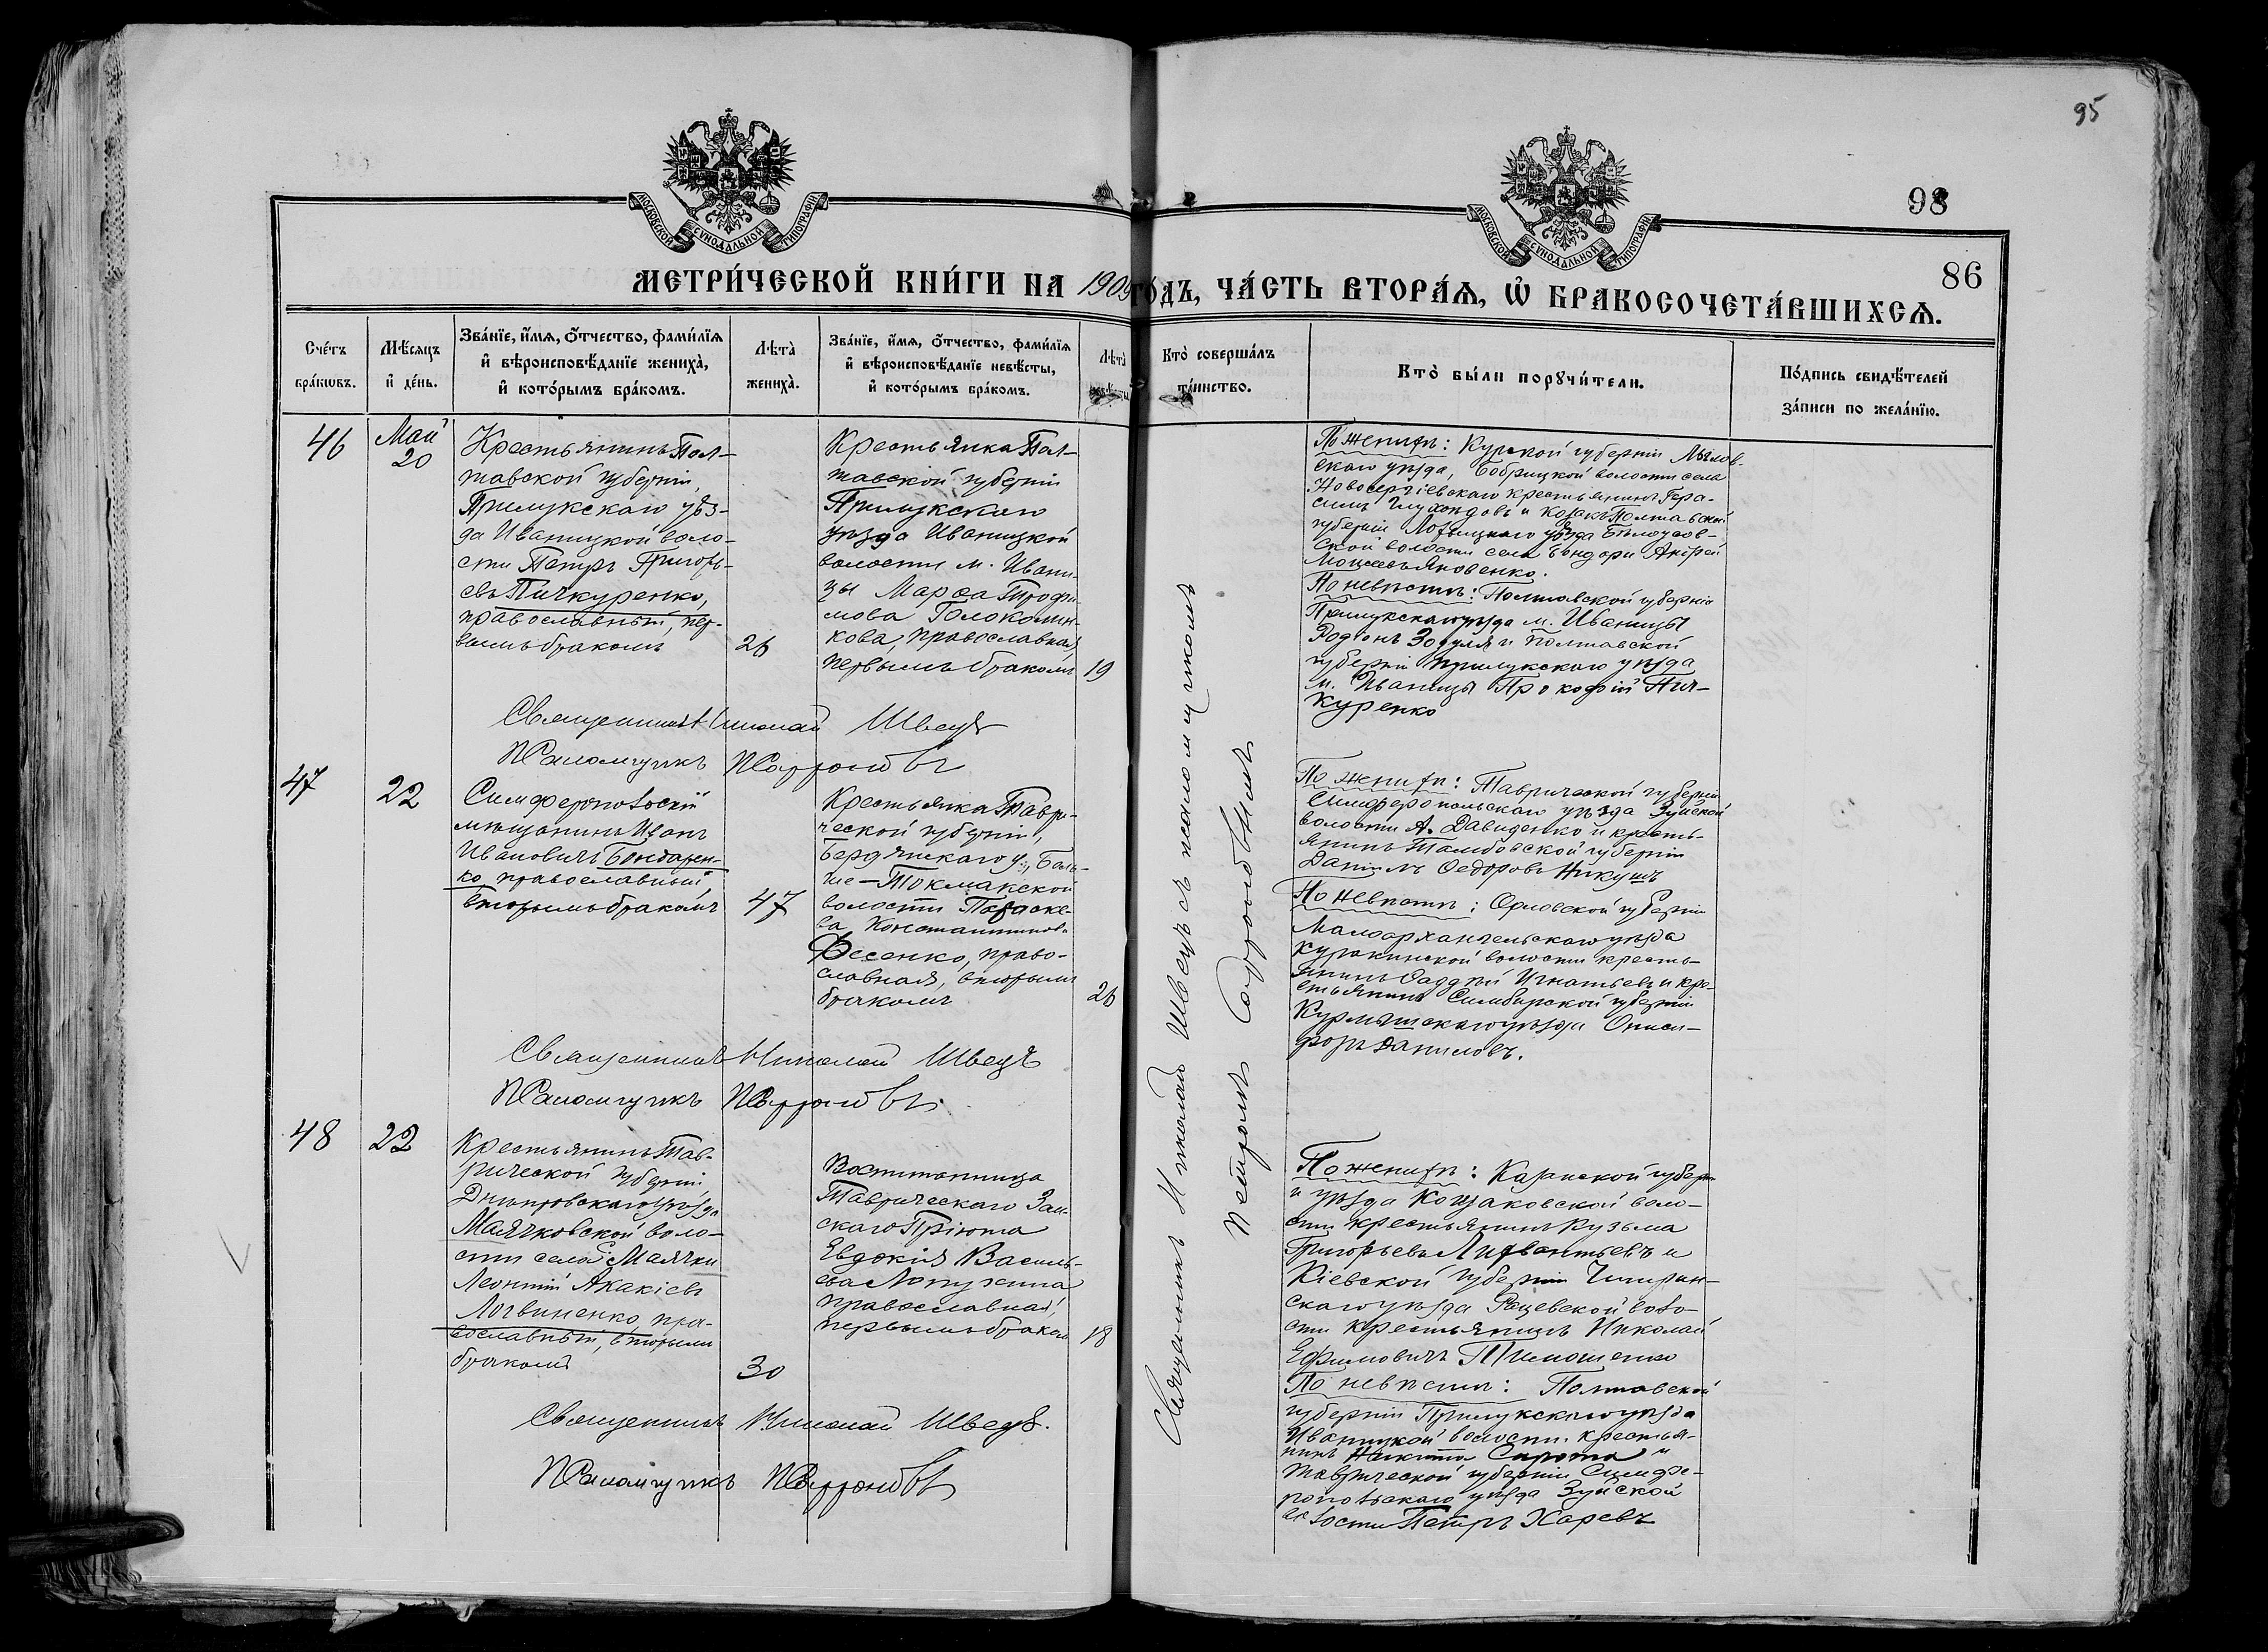 95
98
86
МОСКОВСКОЙ СѴНОДАЛЬНОЙ ТИПОГРАФІИ
МОСКОВСКОЙ СѴНОДАЛЬНОЙ ТИПОГРАФІИ
МЕТРИ́ЧЕСКОЙ КНИ́ГИ НА 1909 ГО́ДЪ, ЧА́СТЬ ВТОРА́Ѧ, Ѽ БРАКОСОЧЕТА́ВШИХСѦ.
Сче́тъ бра́кѡвъ.
Мѣ́сѧцъ и҆ де́нь.
Зва́нїе, и҆́мѧ, ѻ҆́тчество, фами́лїѧ и҆ вѣроисповѣ́данїе жениха̀, и҆ кото́рымъ бра́комъ.
Лѣта̀ жениха̀.
Зва́нїе, и҆́мѧ, ѻ҆́тчество, фами́лїѧ и҆ вѣроисповѣ́данїе невѣ́сты, и҆ кото́рымъ бра́комъ.
Лѣта̀
Кто̀ соверша́лъ та́инство.
Кто̀ бы́ли порꙋчи́тели.
По́дпись свидѣ́телей за́писи по жела́нїю.
46
Май
20
Крестьянинъ Пол-
тавской губерніи,
Прилукскаго уѣз-
да Иваницкой воло-
сти Петръ Григорь-
евъ Пичкуренко,
православный, пер-
вымъ бракомъ
26
Крестьянка Пол-
тавской губерніи
Прилукскаго
уѣзда Иваницкой
волости м. Ивани-
цы Марѳа Трофи-
мова Голоколин-
кова, православная,
первымъ бракомъ
19
По женихѣ: Курской губерніи Льгов-
скаго уѣзда, Бобрицкой волости села
Новосергіевскаго крестьянинъ Гера-
симъ и козакъ Полтавской
губерніи Лохвицкаго уѣзда Бѣлоусов-
ской волости села Бондари Андрей
Моисеевъ Яковенко.
По невѣстѣ: Полтавской губерніи
Прилукскаго уѣзда м. Иваницы
Родіонъ Зозуля и Полтавской
губерніи Прилукскаго уѣзда
м. Иваницы Прокофій Пич-
куренко
Священникъ Николай Швецъ
Псаломщикъ П Сафроновъ
47
22
Симферопольскій
мѣщанинъ Иванъ
Ивановичъ Бондарен-
ко православный,
вторымъ бракомъ
47
Крестьянка Таври-
ческой губерніи,
Бердянскаго у., Боль-
ше-Токмакской
волости Параске-
ва Константинова
Фесенко, право-
славная, вторымъ
бракомъ
26
По женихѣ: Таврической губерніи
Симферопольскаго уѣзда Зуйской
волости А. Давиденко и кресть-
янинъ Тамбовской губерніи
Даніилъ Ѳедоровъ Никушъ
По невѣстѣ: Орловской губерніи
Малоархангельскаго уѣзда
Куракинской волости кресть-
янинъ Ѳаддѣй Игнатьевъ и кре-
стьянинъ Симбирской губерніи
Курмышскаго уѣзда Ониси-
форъ Даниловъ.
Священникъ Николай Швецъ
Псаломщикъ П Сафроновъ
48
22
Крестьянинъ Тав-
рической губерніи
Днѣпровскаго уѣзда
Маячковской воло-
сти села Маячки
Леонтій Акакіевъ
Логвиненко, пра-
вославный, вторымъ
бракомъ
30
Воспитанница
Таврическаго Зем-
скаго Пріюта
Евдокія Василь-
ева Лопухина
православная,
первымъ бракомъ
18
По женихѣ: Казанской губерніи
и уѣзда Кощаковской воло-
сти крестьянинъ Кузьма
Григорьевъ и
Кіевской губерніи Чигирин-
скаго уѣзда Рацевской воло-
сти крестьянинъ Николай
Ефимовичъ Тимошенко
По невѣстѣ: Полтавской
губерніи Прилукскаго уѣзда
Иваницкой волости крестья-
нинъ Никита Сирота и
Таврической губерніи Симфе-
ропольскаго уѣзда Зуйской
волости Петръ Харевъ
Священникъ Николай Швецъ.
Псаломщикъ П Сафроновъ
Священникъ Николай Швецъ съ псаломщикомъ
Петромъ Сафроновымъ